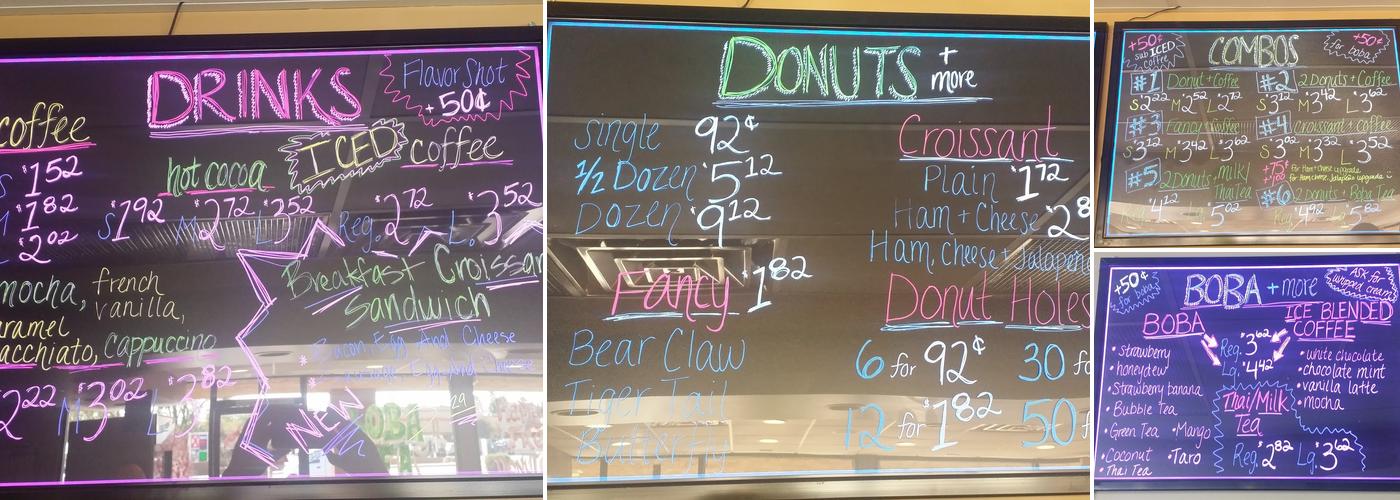 DRINKS
Flavor Shot
+50¢
coffee
$1.52
$1.82
$2.02
hot cocoa
S $1.92 M $2.72 L $3.52
ICED coffee
Reg. $2.72 L. $3.52
mocha, french
vanilla,
cappuccino
2.22 M $3.02 L $3.82
Breakfast Croissan
Sandwich
* Bacon, Egg And Cheese
NEW
DONUTS + more
single 92¢
1/2 Dozen $5.12
Dozen $9.12
Fancy $1.82
Bear Claw
Tiger Tail
Butterfly
Croissant
Plain $1.72
Ham + Cheese $2.8
Ham, Cheese + Jalapeno
Donut Holes
6 for 92¢ 30 fo
12 for $1.82 50 f
+50¢
sub ICED
coffee
COMBOS
+50¢
for boba
#1 Donut + Coffee
S $2.22 M $2.52 L $2.72
#2 2 Donuts + Coffee
S $3.12 M $3.42 L $3.62
#3 Fancy + Coffee
S $3.12 M $3.42 L $3.62
#4 Croissant + Coffee
S $3.02 M $3.32 L $3.52
#5 2 Donuts + Milk/
Thai Tea
Reg. $4.12 L $5.02
+75¢ for Ham + Cheese upgrade
for Ham, Cheese, Jalapeno upgrade
#6 2 Donuts + Boba Tea
Reg. $4.92 $5.82
+50¢
for boba
BOBA + more
ASK for
whipped cream
BOBA
• Strawberry
• honeydew
• Strawberry banana
• Bubble Tea
• Green Tea • Mango
• Coconut • Taro
• Thai Tea
Reg. $3.62
Lg. $4.42
ICE BLENDED
COFFEE
• white chocolate
• chocolate mint
• vanilla latte
• mocha
Thai/Milk
Tea
Reg. $2.82 Lg. $3.62